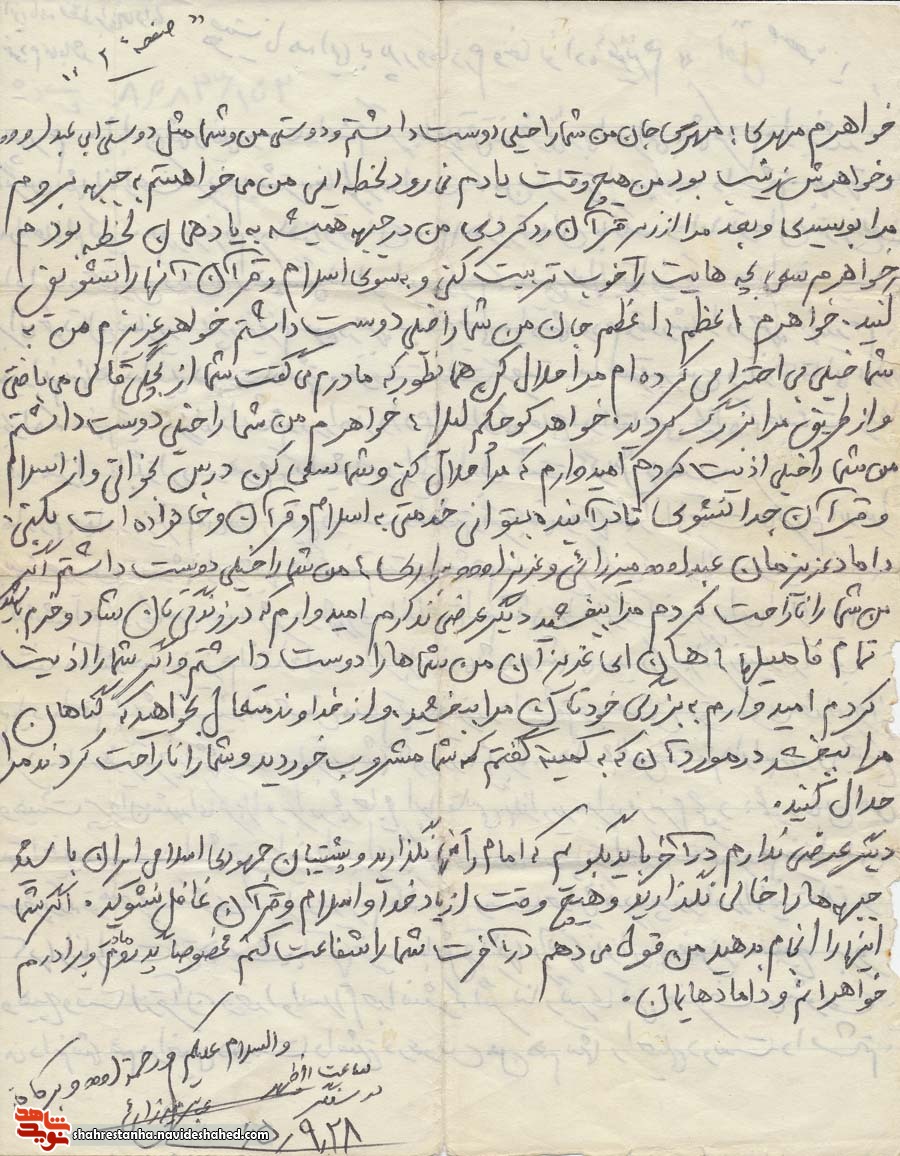 «صفحه ۲»
خواهرم مهری! مهری جان من شما را خیلی دوست داشتم و دوستی من و شما مثل دوستی ابی عبدالله
و خواهرش زینب بود من هیچ وقت یادم نمی رود لحظه ایی من می خواهستم به جبهه بروم
مرا بوسیدی و بعد مرا از زیر قرآن رد کردی، من در جبهه همیشه به یاد همان لحظه بودم
خواهرم سعی بچه هایت را خوب تربیت کنی و به سوی اسلام و قرآن آنها را تشویق
کنید. خواهرم اعظم! اعظم جان من شما را خیلی دوست داشتم خواهر عزیزم من به
شما خیلی بی احترامی کرده ام مرا حلال کن همانطور که مادرم می گفت شما از بچگی قالی می بافتی
و از طریق مرا بزرگ کردید. خواهر کوچکم لیلا! خواهرم من شما را خیلی دوست داشتم
من شما را خیلی اذیت کردم امیدوارم که مرا حلال کنی و شما سعی کن درس بخوانی و از اسلام
و قرآن جدا نشوی تا در آینده بتوانی خدمتی به اسلام و قرآن و خانواده ات بکنی.
داماد عزیزمان عبدالله میرزائی و عزیزالله یاری! من شما را خیلی دوست داشتم اگر
من شما را ناراحت کردم مرا ببخشید دیگر عرضی ندارم امیدوارم که در زندگی تان شاد و خرم باشید
تمام فامیلها! هان ای عزیزان من شماها را دوست داشتم و اگر شما را اذیت
کردم امیدوارم به بزرگی خودتان مرا ببخشید. و از خداوند متعال بخواهید که گناهان
مرا ببخشد در مورد آن که به کمیته گفتم که شما مشروب خوردید و شما را ناراحت کردند مرا
حلال کنید.
دیگر عرضی ندارم در آخر باید بگویم که امام را تنها نگذارید و پشتیبان جمهوری اسلامی ایران باشید
جبهه ها را خالی نگذارید و هیچ وقت از یاد خدا و اسلام و قرآن غافل نشوید. اگر شما
اینها را انجام بدهید من قول می دهم در آخرت شما را شفاعت کنم مخصوصاً پدر و مادرم و برادرم
خواهرانم و دامادهایمان.
والسلام علیکم و رحمة الله و برکاته
ساعت ۱۱ ظهر
در سنگر
۹/۲۸
نوید شاهد
shahrestanha.navideshahed.com